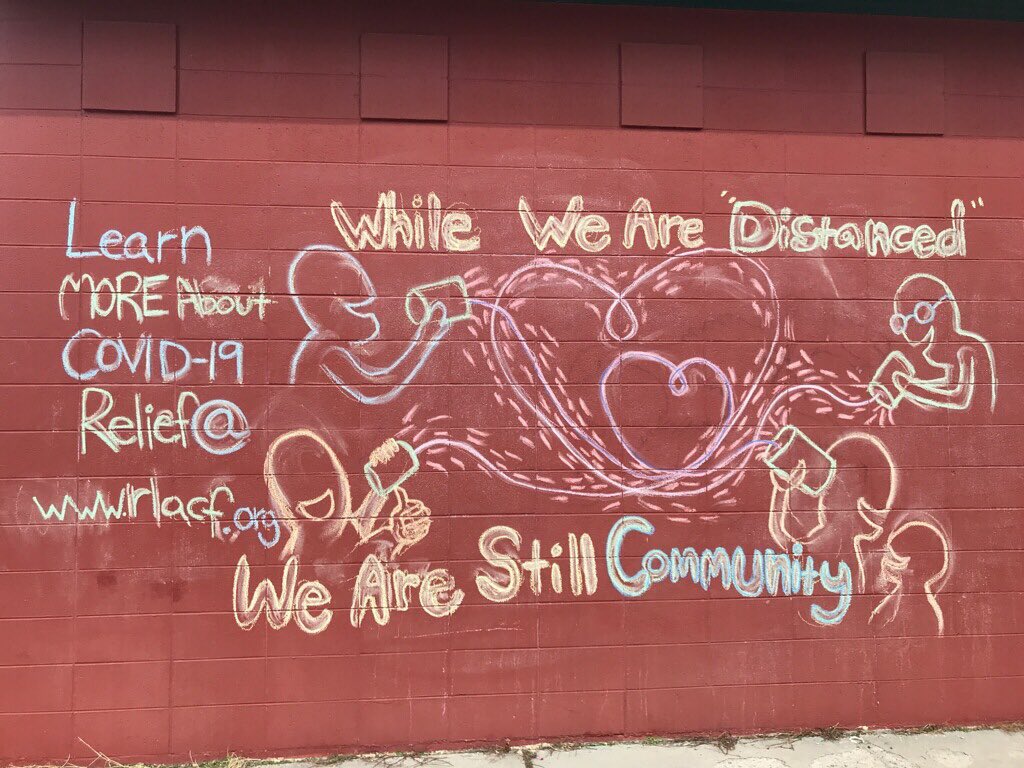 Learn
MORE About
COVID-19
Relief@
www.rlacf.org
While We Are "Distanced"
We Are Still Community